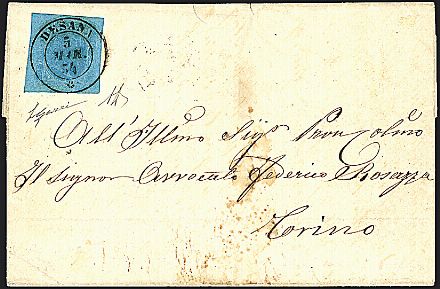 DESANA
5
MAR
54
All' Illmo Sigr Pron Colmo
Il Signor Avvocato Federico Rosazza
Torino